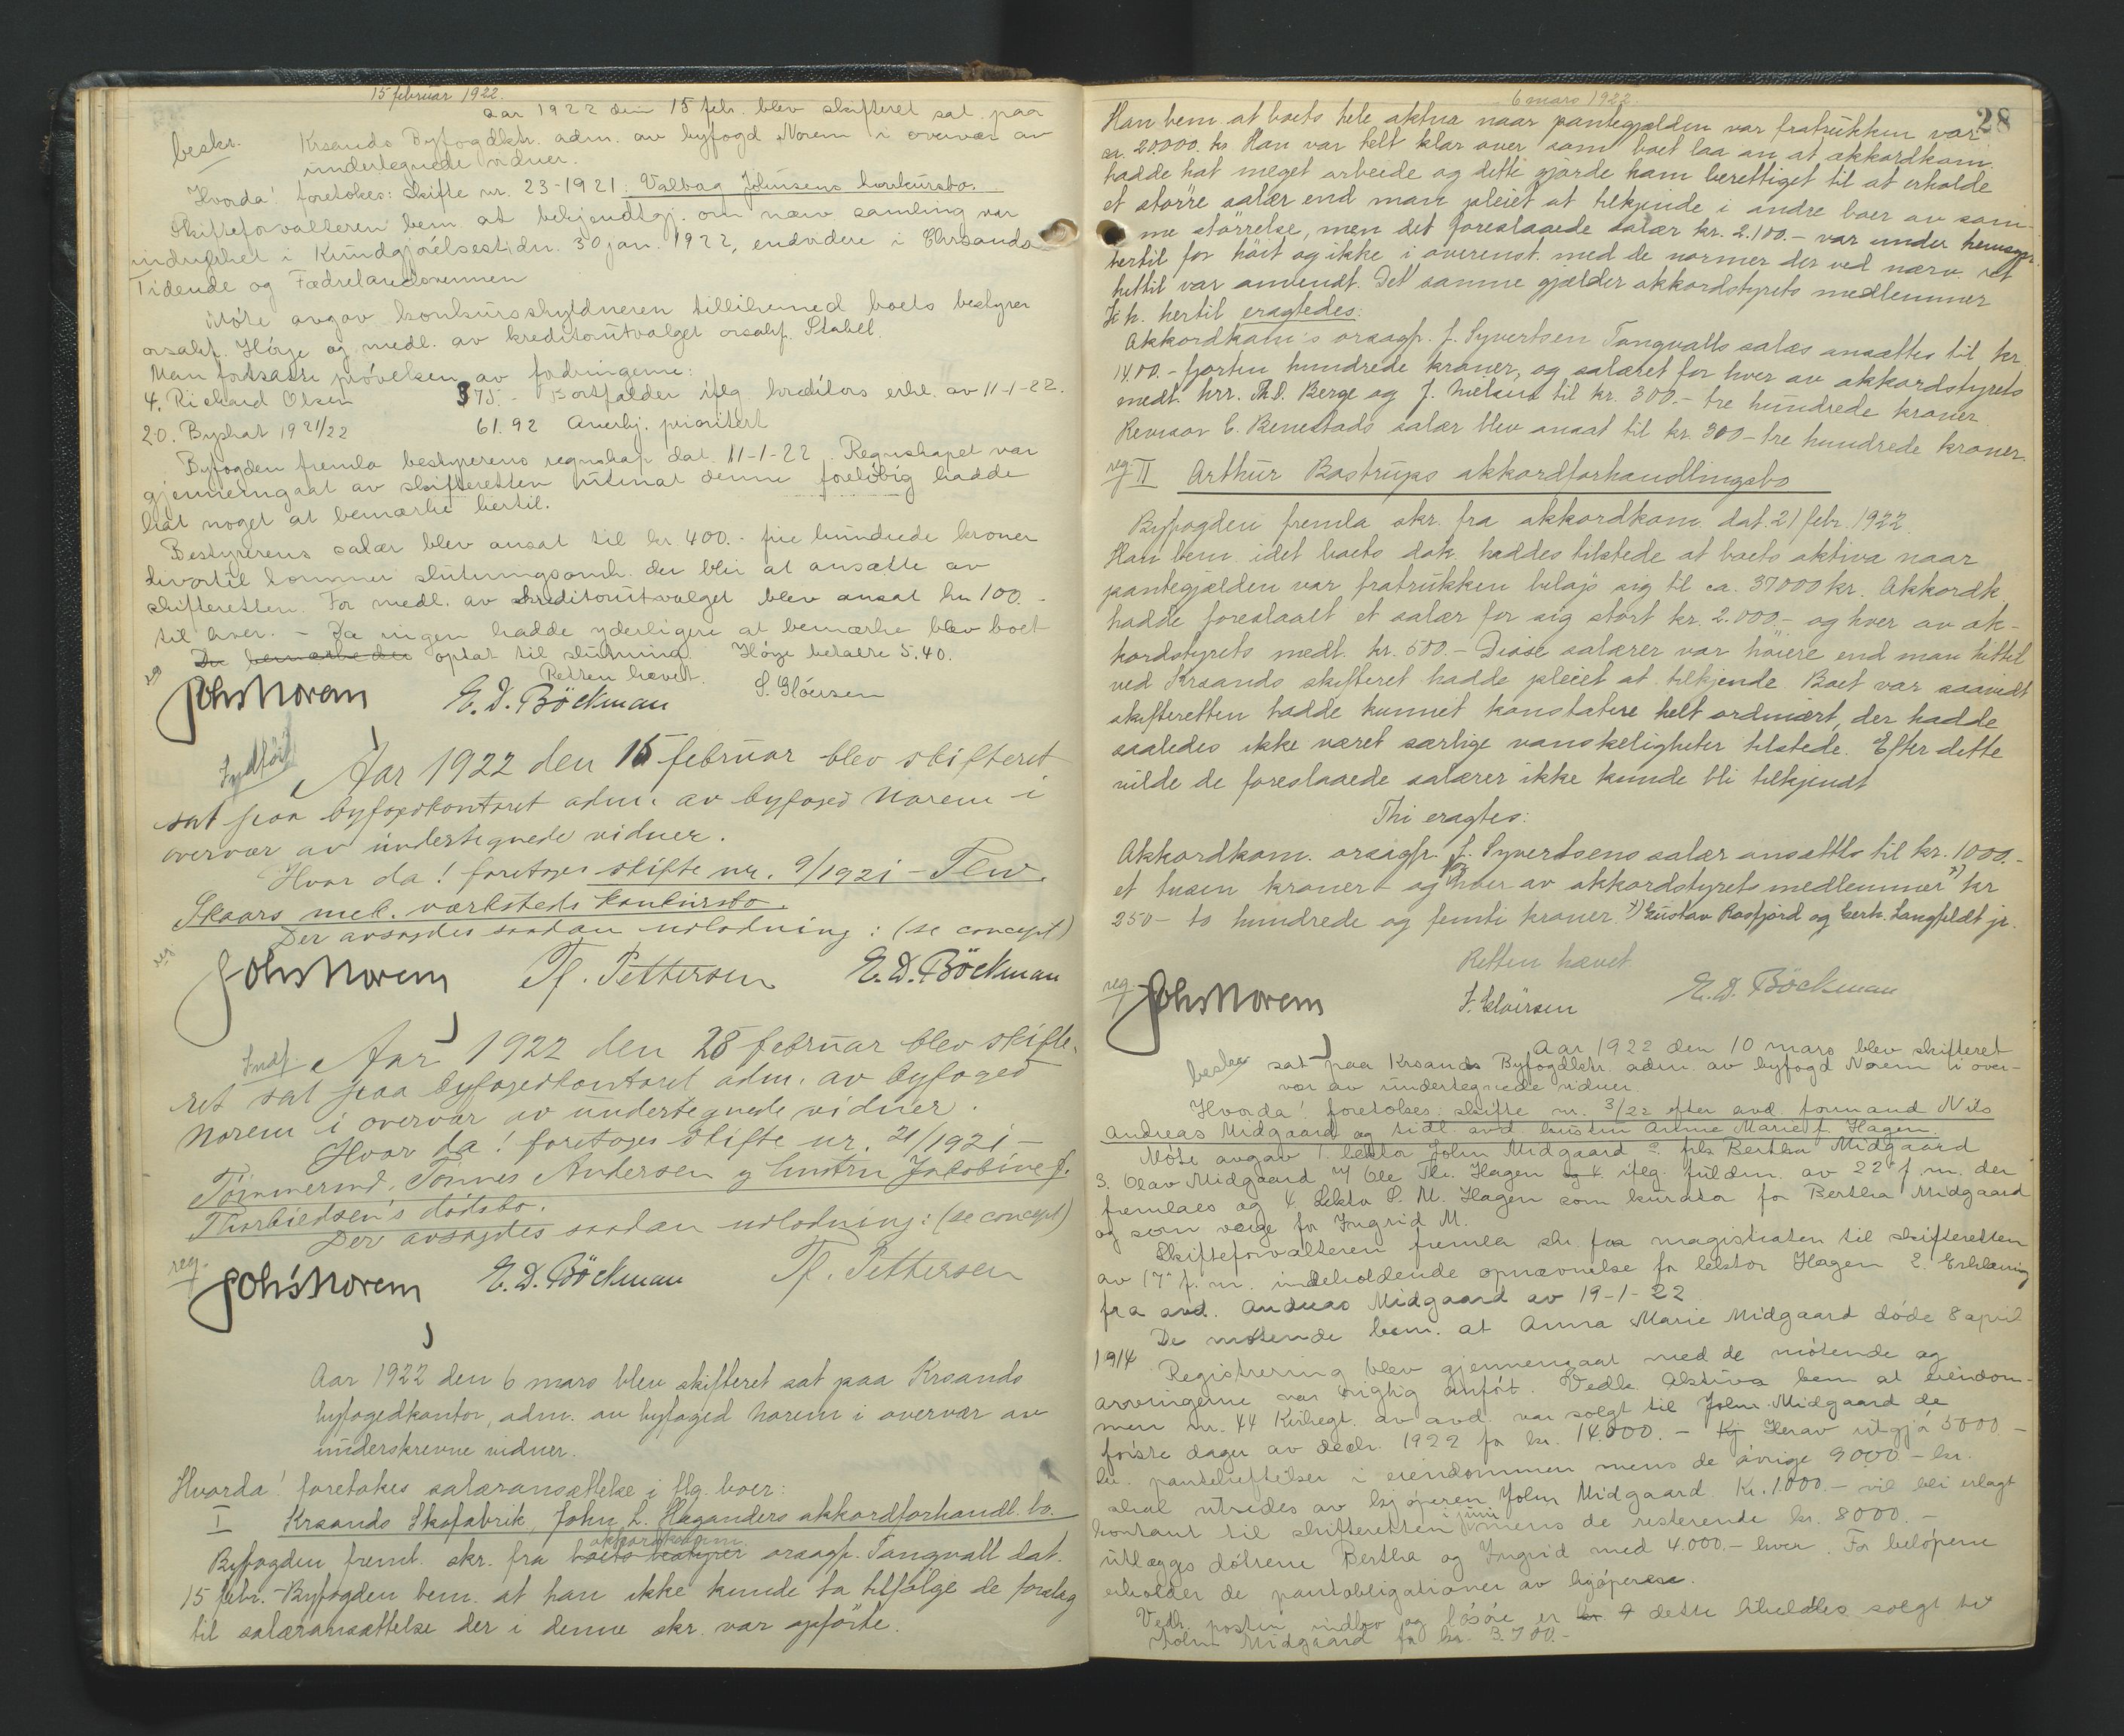 15 februar 1922.
Aar 1922 den 15 febr. blev skifteret sat paa
beskr. Krsands Byfogdktr. adm. av byfogd Norem i overvær av
undertegnede vidner.
Hvorda! foretokes: Skifte nr. 23-1921: Valborg Johnsens konkursbo.
Skifteforvalteren bem. at bekjendtgj. om nærv. samling var
indrykket i Kundgjørelsestidn. 30 jan. 1922, endvidere i Chrsands
Tidende og Fædrelandsvennen
Møte avgav konkursskyldneren tillikemed boets bestyrer
orsakf. Hørje og medl. av kreditorutvalget orsakf. Stabel.
Man fortsatte prøvelsen av fordringerne:
4. Richard Olsen 375.- Bortfalder iflg kreditors erkl. av 11-1-22.
20. Byskat 1921/22 61.92 Anerkj. prioritert
Byfogden fremla bestyrerens regnskap dat. 11-1-22. Regnskapet var
gjennemgaat av skifteretten uten at denne foreløbig hadde
hat noget at bemærke hertil.
Bestyrerens salær blev ansat til kr. 400.- fire hundrede kroner
hvortil kommer slutningsomk. der blir at ansætte av
skifteretten. For medl. av kreditorutvalget blev ansat kr. 100.-
til hver. - Da ingen hadde yderligere at bemærke blev boet
Der bemærkedes optat til slutning. Hørje betalte 5.40.
Retten hævet.
reg
Johs Norem E. D. Böckman S. Gløersen
Indført Aar 1922 den 15 februar blev skifteret
sat paa byfogedkontoret adm. av byfoged Norem i
overvær av undertegnede vidner.
Hvor da! foretoges skifte nr. 9/1921 - Flw.
Skaars mek. værksteds konkursbo.
Der avsagdes saadan utlodning: (se concept)
reg.
Johs Norem Tf. Pettersen E. D. Böckman
Indf. Aar 1922 den 28 februar blev skifte-
ret sat paa byfogedkontoret adm. av byfoged
Norem i overvær av undertegnede vidner.
Hvor da! foretoges skifte nr. 21/1921 -
Tømmermd. Tønnes Andersen og hustru Jakobine f.
Thorbiedsen's dödsbo.
Der avsagdes saadan utlodning: (se concept)
reg.
Johs Norem E. D. Böckman Tf. Pettersen
Aar 1922 den 6 mars blev skifteret sat paa Krsands
byfogedkontor, adm. av byfoged Norem i overvær av
underskrevne vidner.
Hvorda! foretokes salæransættelse i flg. boer:
I Krsands Skofabrik, John L. Haganders akkordforhandl. bo.
akkordkomm.
Byfogden freml. skr. fra boets bestyrer orsagf. Tangvall dat.
15 febr. - Byfogden bem. at han ikke kunde ta tilfølge de forslag
til salæransættelse der i denne skr. var opførte.
6 mars 1922.
28
Han bem. at boets hele aktiva naar pantegjælden var fratrukken var
ca. 20.000. kr. Han var helt klar over som boet laa an at akkordkom.
hadde hat meget arbeide og dette gjorde ham berettiget til at erholde
et større salær end man pleiet at tilkjende i andre boer av sam-
me størrelse, men det foreslaaede salær kr. 2.100.- var under hensyn
hertil for høit og ikke i overenst. med de normer der ved nærv. ret
hittil var anvendt. Det samme gjælder akkordstyrets medlemmer
I h. hertil eragtedes:
Akkordkom's orsagf. J. Syvertsen Tangvalls salær ansættes til kr
1400.- fjorten hundrede kroner, og salæret for hver av akkordstyrets
medl. hrr. Th. D. Berge og J. Nielsen til kr. 300.- tre hundrede kroner
Revisor C. Benestads salær blev ansat til kr. 300 - tre hundrede kroner.
reg. II Arthur Bastrups akkordforhandlingsbo
Byfogden fremla skr. fra akkordkom. dat. 21 febr. 1922
Han bem. idet boets dok. haddes tilstede at boets aktiva naar
pantegjælden var fratrukken beløp sig til ca. 37000 kr. Akkordk.
hadde foreslaat et salær for sig stort kr. 2.000.- og hver av ak-
kordstyrets medl. kr. 500.- Disse salærer var høiere end man hittil
ved Krsands skifteret hadde pleiet at tilkjende. Boet var saavidt
skifteretten hadde kunnet konstatere helt ordinært, der hadde
saaledes ikke været særlige vanskeligheter tilstede. Efter dette
vilde de foreslaaede salærer ikke kunde bli tilkjendt
Thi eragtes:
Akkordkom. orsagf. J. Syvertsens salær ansættes til kr. 1000.-
et tusen kroner - og for hver av akkordstyrets medlemmer x) kr
250 - to hundrede og femti kroner. x) Gustav Rosfjord og Gerh. Langfeldt jr.
Retten hævet
reg.
Johs Norem S. Gløersen E. D. Böckman
Aar 1922 den 10 mars blev skifteret
beskr sat paa Krsands Byfogdktr. adm. av byfogd Norem i over-
vær av undertegnede vidner.
Hvorda! foretokes: skifte nr. 3/22 efter avd. formand Nils
Andreas Midgaard og tidl. avd. hustru Anne Marie f. Hagen.
Møte avgav 1. lektor John Midgaard 2. frk Bertha Midgaard
3. Olav Midgaard v/ Ole Th. Hagen og 4. iflg. fuldm. av 22 f. m. der
fremlaes og 4. Lektor S. M. Hagen som kurator for Bertha Midgaard
og som verge for Ingrid M.
Skifteforvalteren fremla skr. fra magistraten til skifteretten
av 17 f. m. indeholdende opnævnelse for lektor Hagen 2. Erklæring
fra avd. Andreas Midgaard av 19-1-22
De møtende bem. at Anna Marie Midgaard døde 8 april
1914. Registrering blev gjennemgaat med de møtende og
arvingerne var rigtig anført. Vedk. Aktiva bem. at eiendom-
men nr. 44 Kirkegt. av avd. var solgt til John Midgaard de
første dager av decbr. 1922 for kr. 14.000.- Kj Herav utgjø 5000 -
kr. pantehæftelser i eiendommen mens de øvrige 9000 - kr.
skal utredes av kjøperen John Midgaard. Kr. 1.000.- vil bli erlagt
kontant til skifteretten i juni mens de resterende kr. 8000.-
utlægges døtrene Bertha og Ingrid med 4.000.- hver. For beløpene
erholder de pantobligationer av kjøperen.
Vedr. posten indbo og løsøre er dette likeledes solgt til
John Midgaard for kr. 3.700.-